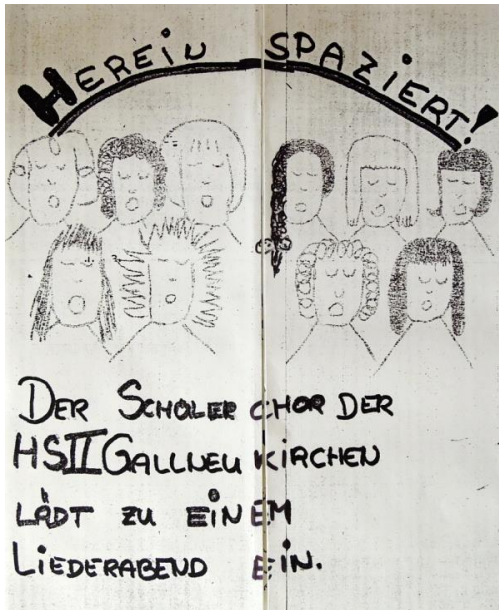 HEREIN SPAZIERT!
DER SCHÜLERCHOR DER
HSII GALLNEUKIRCHEN
LÄDT ZU EINEM
LIEDERABEND EIN.